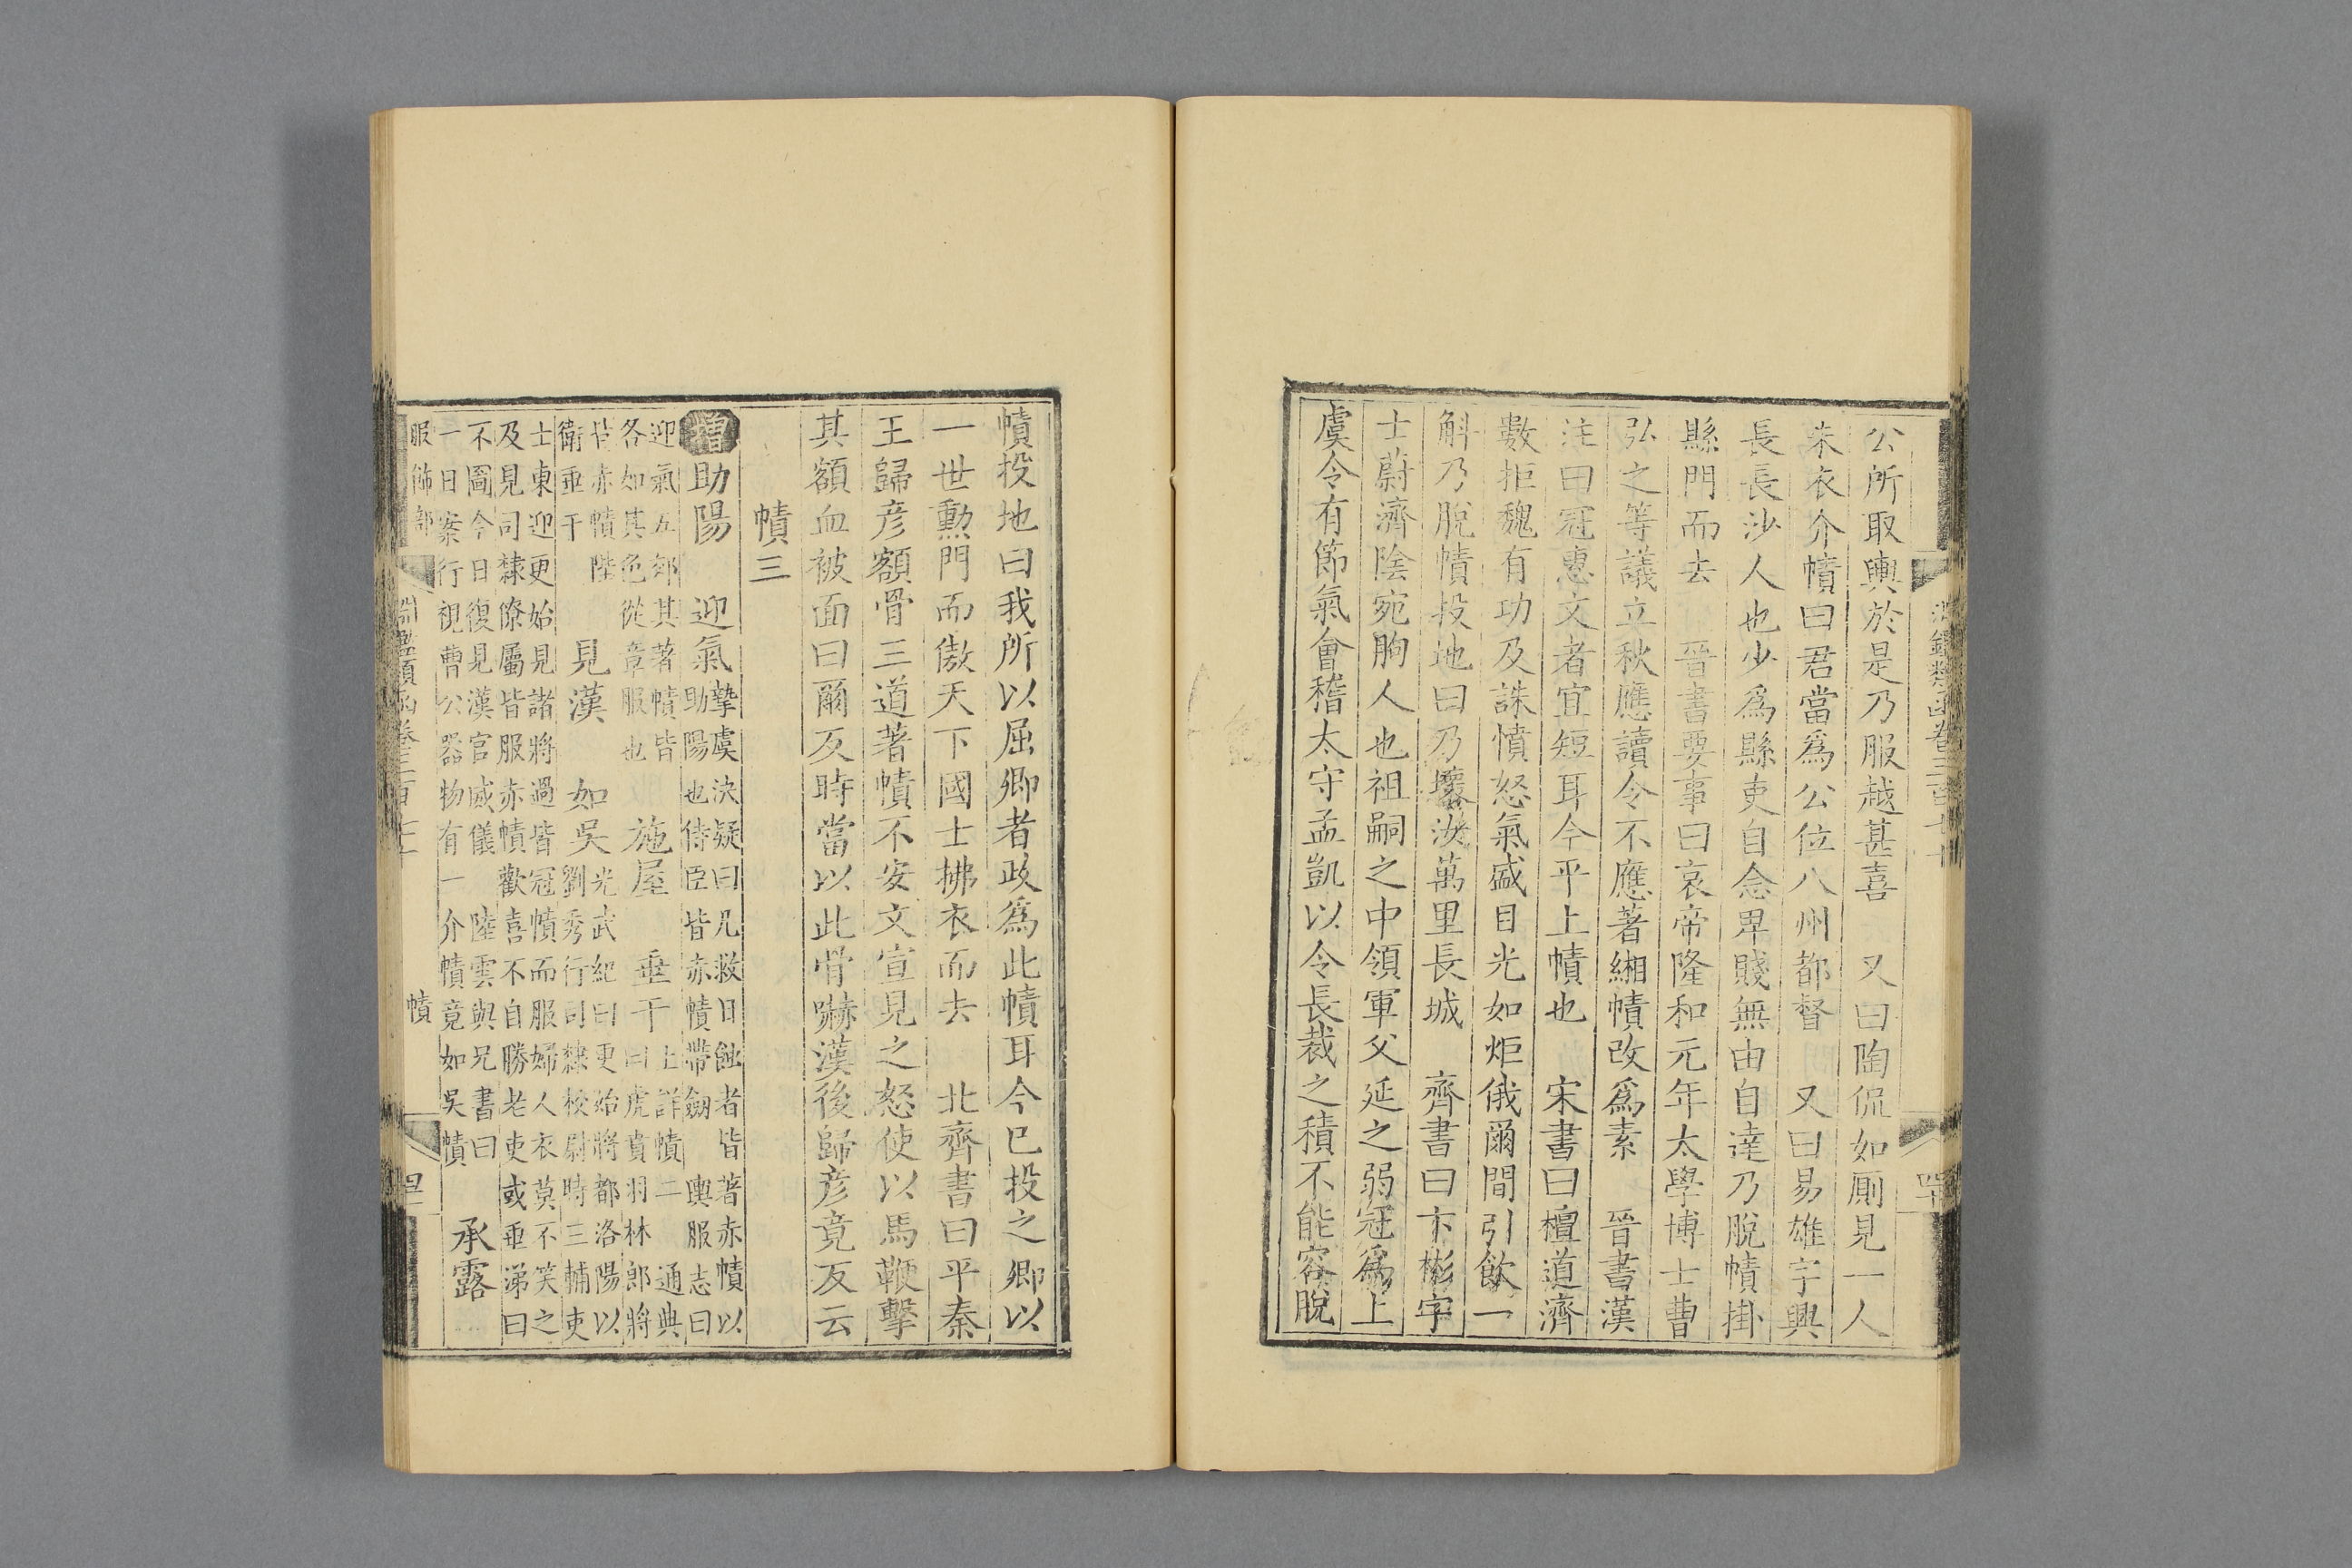 公所取輿於是乃服越甚喜　又曰陶侃如厠見一人
朱衣介幘曰君當爲公位八州都督　又曰易雄字興
長長沙人也少爲縣吏自念卑賤無由自達乃脫幘掛
縣門而去　晉書要事曰哀帝隆和元年太學博士曹
弘之等議立秋應讀令不應著緗幘改爲素　晉書漢
注曰冠惠文者宜短耳今平上幘也　宋書曰檀道濟
數拒魏有功及誅憤怒氣盛目光如炬俄爾間引飲一
斛乃脫幘投地曰乃壞汝萬里長城　齊書曰卞彬字
士蔚濟陰宛朐人也祖嗣之中領軍父延之弱冠爲上
虞令有節氣會稽太守孟凱以令長裁之積不能容脫
幘投地曰我所以屈卿者政爲此幘耳今已投之卿以
一世勳門而傲天下國士拂衣而去　北齊書曰平秦
王歸彦額骨三道著幘不安文宣見之怒使以馬鞭擊
其額血被面曰爾反時當以此骨嚇漢後歸彦竟反云
幘三
增助陽　迎氣摯虞決疑曰凡救日蝕者皆著赤幘以
助陽也侍臣皆赤幘帶劒　輿服志曰
迎氣五郊其著幘皆
各如其色從章服也　施屋　垂干上詳幘二　通典
曰虎賁羽林郎將
皆赤幘陛
衛垂干　見漢　如吳光武紀曰更始將都洛陽以
劉秀行司隸校尉時三輔吏
士東迎更始見諸將過皆冠幘而服婦人衣莫不笑之
及見司隸僚屬皆服赤幘歡喜不自勝老吏或垂涕曰
不圖今日復見漢官威儀　陸雲與兄書曰
一日案行視曹公器物有一介幘竟如吳幘　承露
服飾部　淵鑑類函卷三百七十　幘